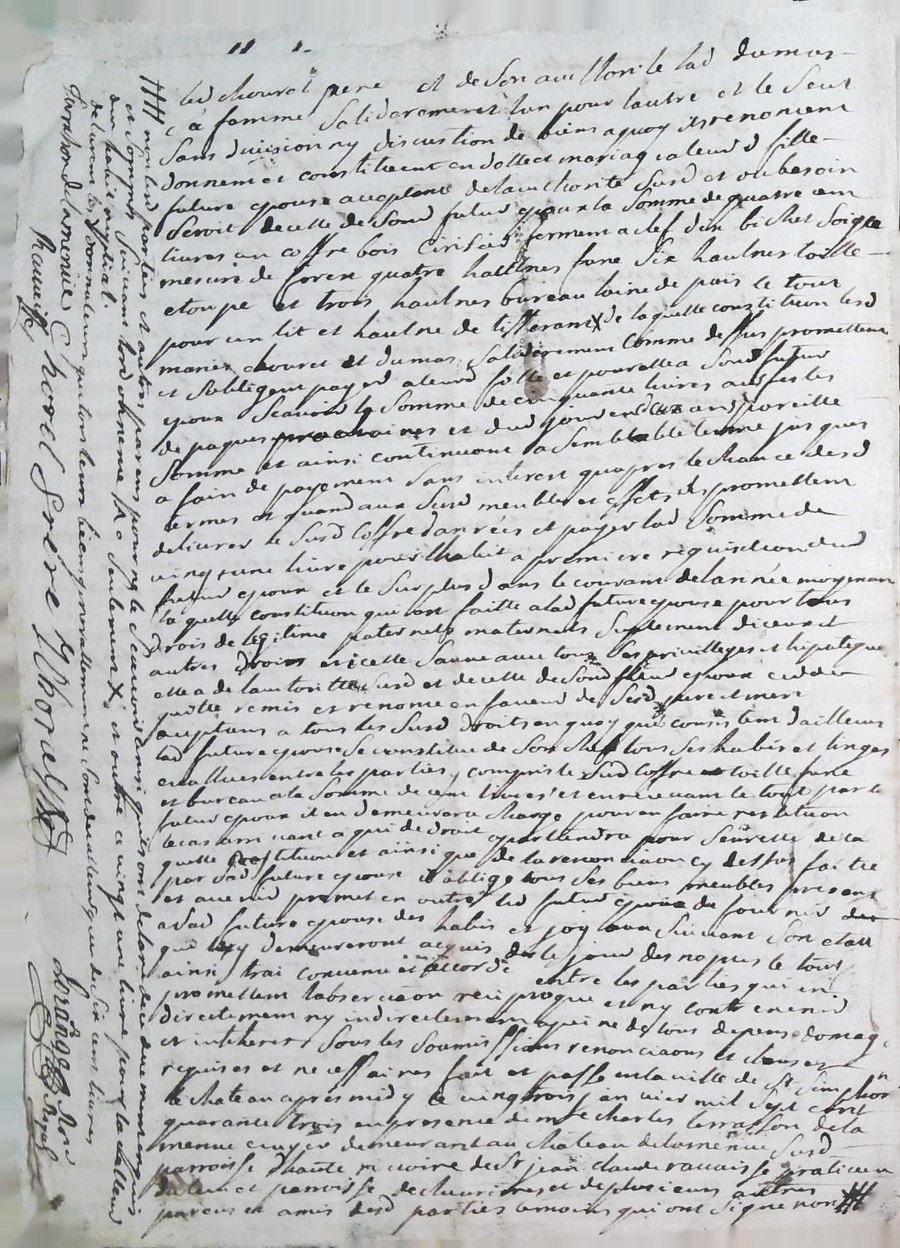 led chouvet pere et de son authorité lad dumas
sa femme solidairement lun pour lautre et le seul
sans division ny discustion de biens a quoy ils renoncent
donnent et constituent en dotte et mariage a leurd fille
future epouse acceptante de lauthorité susd et au besoin
seroit de celle de sond futur epoux la somme de quatre cent
livres un coffre bois cerisier fermant a clef dix bichet soigle
mesure de forex quatre haulnes fane six haulnes toille
etoupe et trois haulnes bureau laine de pais le tout
pour un lit et haulne de tifferant X de laquelle constitution lesd
mariés chouvet et dumas solidairement comme dessus promettent
et sobligent payer a leurd fille et pour elle a sond futur
epoux scavoir la somme de cinquante livres aux festes
de paques prochaines et dud jour en deux ans pareille
somme et ainsi continuant a semblable terme jusques
a fain de payement sans interest quapres lecheance desd
termes et quand aux susd meubles et effets ils promettent
delivrer le susd coffre danrées et payer lad somme de
vingt une livre pour lhabit a premiere requisition dud
futur epoux et le surplus dans le courant de lannée moyenant
laquelle constitution qui est faitte a lad future epouse pour tous
drois de legitime paternels maternels suplement diceux et
autres droits et icelle sauve avec tous ses privilleges et hipoteque
elle a de lautoritté susd et de celle de sond futur epoux ceddé
quitté remis et renoncé en faveur de sesd pere et mere
acceptans a tous les susd droits en quoy qu'ils consistent dailleurs
lad future epouse se constitue de son chef tous ses habis et linges
evallues entre les parties y compris le susd coffre toille fane
et bureau a la somme de cent livres et en recevant le tout par le
futur epoux il en demeurera chargé pour en faire restitution
le cas arrivant a qui de droit apartiendra pour seurette de la
quelle constitution et ainsi que de la renonciaon cy dessus faitte
par lad future epouse il oblige tous ses biens meubles presens
et avenir promet en outre led futur epoux de fournir a
lad future epouse des habis et joyaux suivant son etat
qui luy demeureront acquis des le jour des nopces le tout
ainsi trai convenu et accordé entre les parties qui en
promettent lobservaon reciproque et ny contrevenir
directement ny indirectement a peine de tous depens domag
et interets sous les soumissions renonciaons et clauses
requises et necessaires fait et passé en la ville de St Simphorn
le chateau apres midy le vingt trois janvier mil sept cent
quarante trois en presence de mre charles terrasson de la
menue ecuyer demeurant au chateau de la menue susd
parroisse dhaute rivoire de Sr jean claude ravaisse praticien
dud lieu et parroisse de chevrieres et de plusieurs autres
parens et amis desd parties temoins qui ont signé non ##
## non led parties et autres parens pour ne le scavoir ainsi quils ont declaré de ce enquis
et sommés suivant lordonnance X et outre ce vingt une livre pour la valleur
dun habit nuptial
declarent les donnateurs que tous leurs biens generallement ne sont de valleur que de six cent livres
Terrasson de la menue Choral frère Choral
Ravaisse
Lorange Nore
Royal